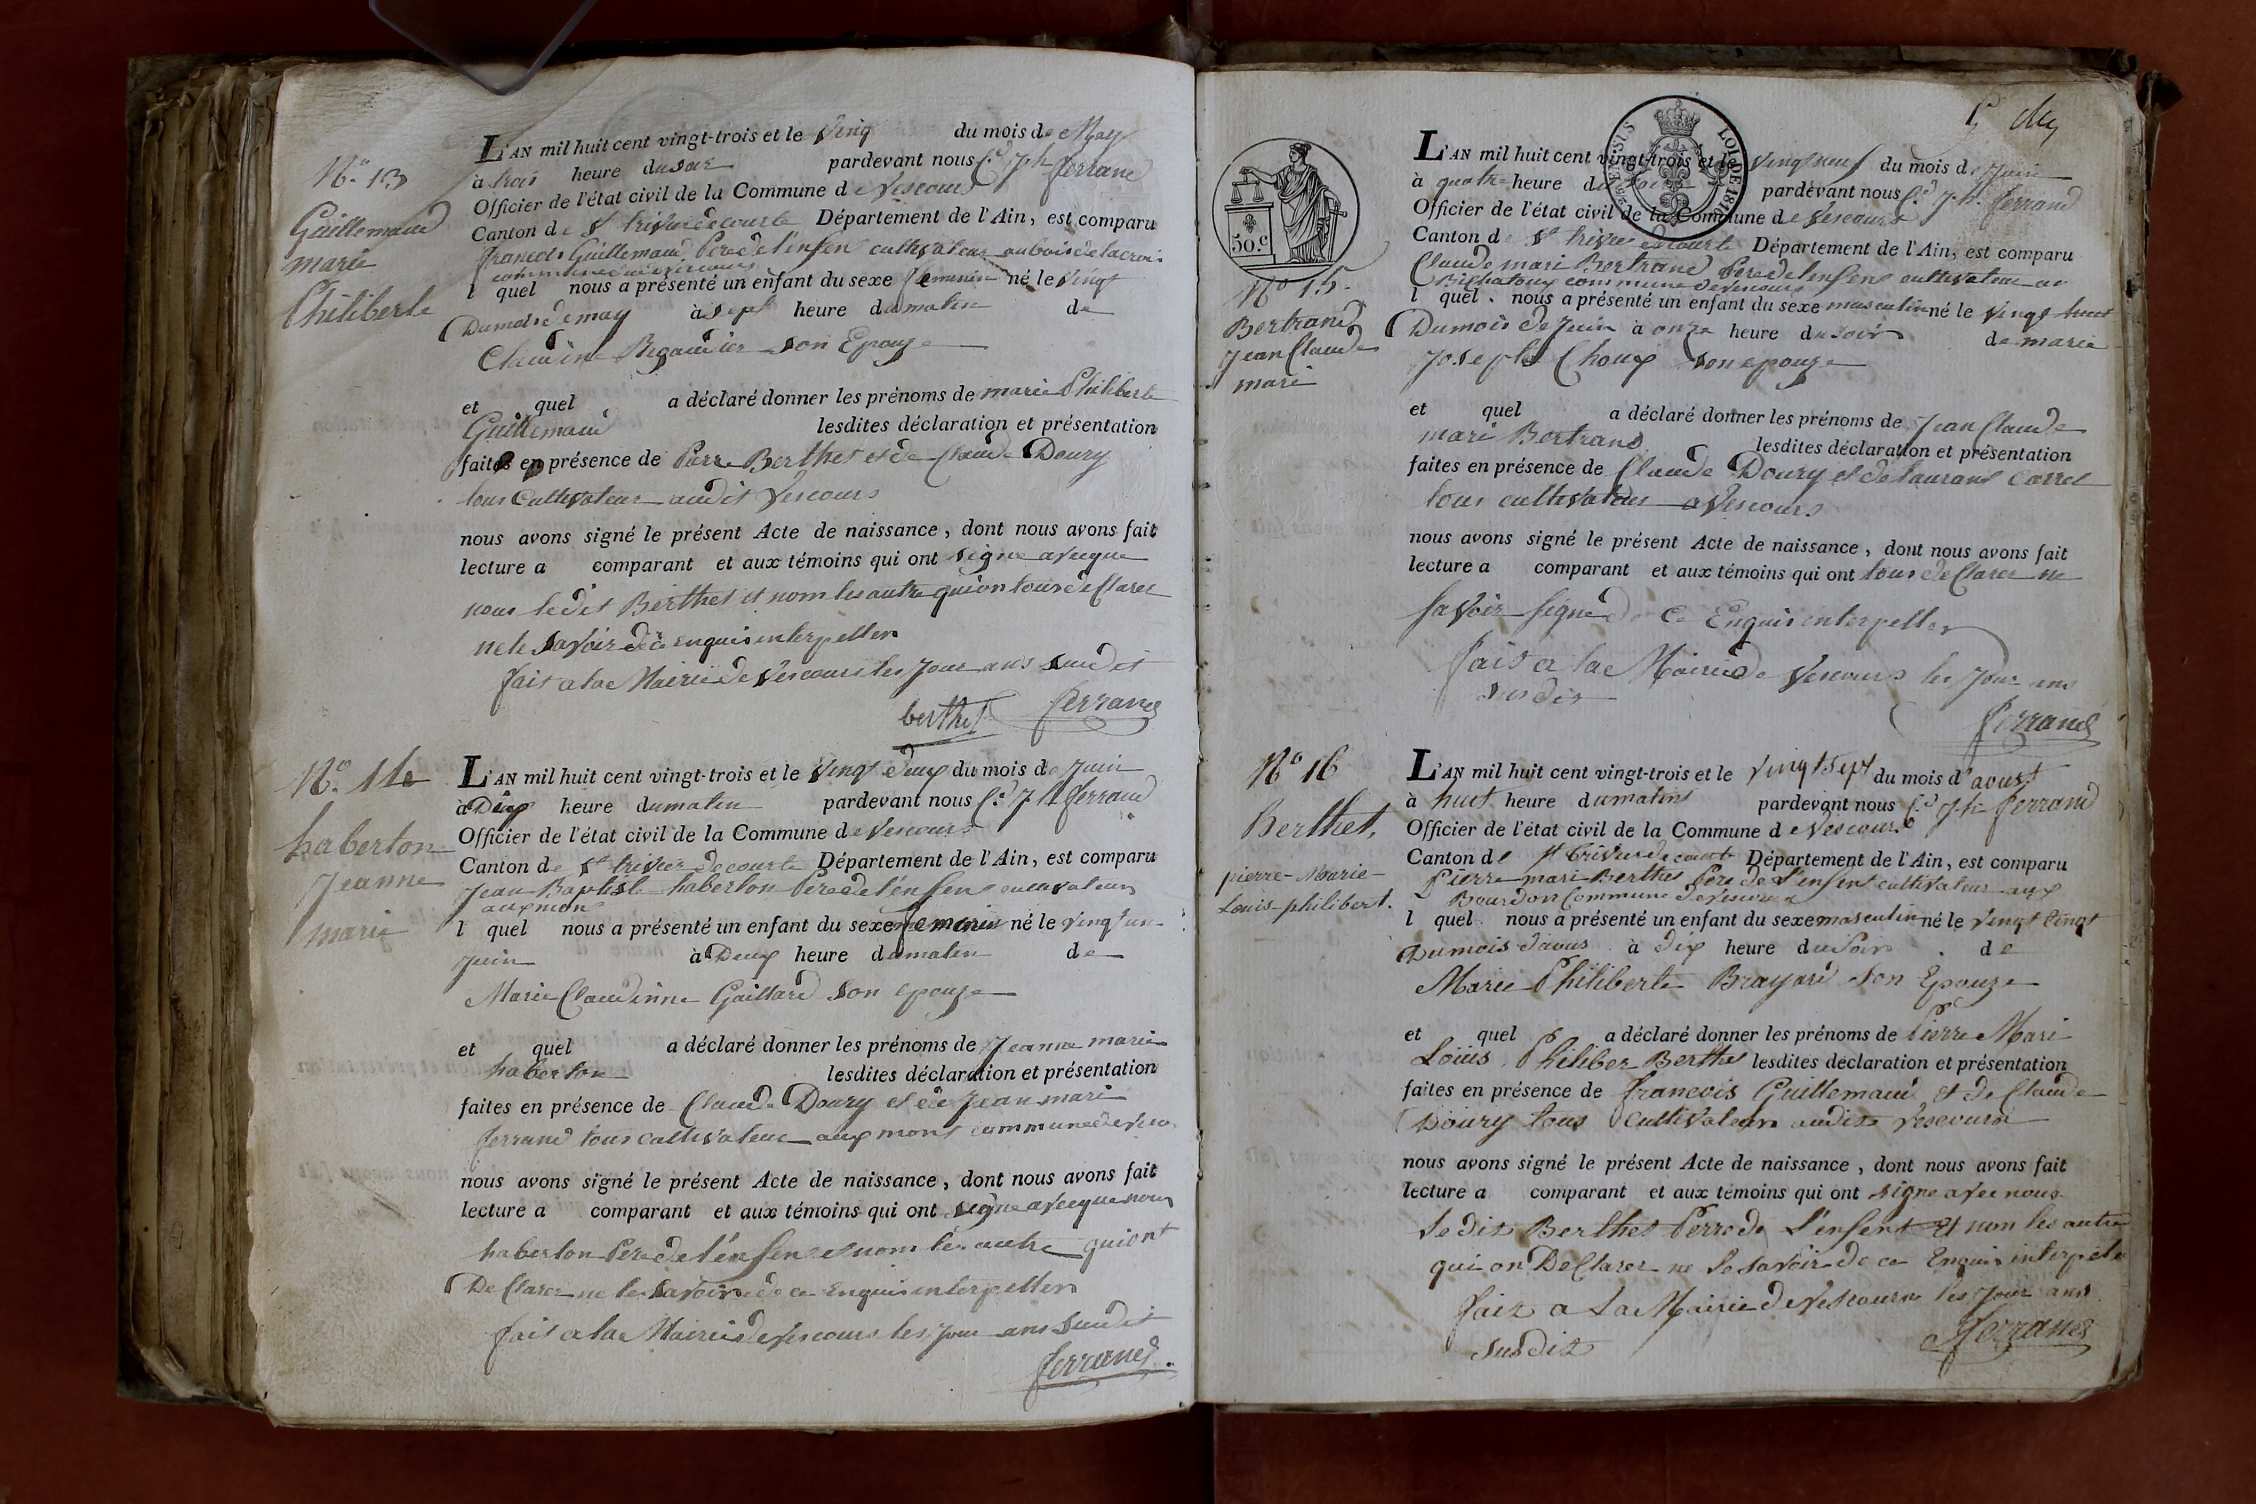 N.º 13
Guillemaud
marie
Philiberte
L'AN mil huit cent vingt-trois et le Vingt du mois de May
à trois heure du soir pardevant nous C.d J.ph ferrand
Officier de l'état civil de la Commune de Vescours
Canton de St trivier de courte Département de l'Ain, est comparu
françois Guillemaud Pere de l'enfen cultivateur au bois de la croi
commune de vescours
l quel nous a présenté un enfant du sexe feminin né le vingt
Du mois de may à sept heure du matin de
Claudine Regaudier son Epouze
et quel a déclaré donner les prénoms de marie Philiberte
Guillemaud lesdites déclaration et présentation
faites en présence de Pierre Berthet et de Claude Doury
tous Cultivateur audit Vescours
nous avons signé le présent Acte de naissance, dont nous avons fait
lecture a comparant et aux témoins qui ont signe avecque
nous ledit Berthet et nom les autre qui on tous de Clarer
ne le savoir de ce enquis interpeller
fait a la Mairie de Vescours les jour ans susdit
berthet ferrand
N.º 14
haberton
Jeanne
marie
L'AN mil huit cent vingt-trois et le Vingt deux du mois de Juin
à Dix heure du matin pardevant nous C.d J.ph ferrand
Officier de l'état civil de la Commune de Vescours
Canton de St trivier de courte Département de l'Ain, est comparu
Jean Baptiste haberton Pere de l'enfens cultivateur
aux mons
l quel nous a présenté un enfant du sexe femenin né le vingt un
Juin à Deux heure du maten de
Marie Claudinne Gaillard son epouze
et quel a déclaré donner les prénoms de Jeanne marie
haberton lesdites déclaration et présentation
faites en présence de Claude Doury et de Jean mari
ferrand tous cultivateur aux mons commune de vesco
nous avons signé le présent Acte de naissance, dont nous avons fait
lecture a comparant et aux témoins qui ont signe avecque nous
haberton Pere de l'énfens et nom les autre qui ont
De Clarer ne le savoir de ce enquis interpeller
fait a la Mairie de Vescours les jour ans susdit
ferrand
50.c
LOI DE 181
N.º 15.
Bertrand
Jean Claude
mari
L'AN mil huit cent vingt-trois et le Vingt neuf du mois de Juin
à quatre heure du soir pardevant nous C.d J.ph. ferrand
Officier de l'état civil de la Commune de Vescours
Canton de St trivier de courte Département de l'Ain, est comparu
Claude mari Bertrand Pere de lenfens cultivateur au
Bichatoux commune de vescours
l quel nous a présenté un enfant du sexe masculin né le Vingt huit
Du mois de Juin à onze heure du soir de marie
Josephe Choux son epouze
et quel a déclaré donner les prénoms de Jean Claude
mari Bertrand lesdites déclaration et présentation
faites en présence de Claude Doury et de laurans Carrel
tous cultivateur a Vescours
nous avons signé le présent Acte de naissance, dont nous avons fait
lecture a comparant et aux témoins qui ont tous de Clarer ne
savoir signe de Ce Enquis interpeller
fait a la Mairie de Vescours les Jour ans
susdit
ferrand
N.º 16
Berthet,
pierre-Marie-
Louis-philibert.
L'AN mil huit cent vingt-trois et le vingt Sept du mois d'aoust
à huit heure du matins pardevant nous C.d J.ph ferrand
Officier de l'état civil de la Commune de Vescours
Canton de St trivier de courte Département de l'Ain, est comparu
Pierre mari Berthet Pere de L'enfent cultivateur aux
Bourdon Commune de vescours
l quel nous a présenté un enfant du sexe masculin né le vingt Cinqt
Du mois d'aous à dix heure du Soir de
Marie Philiberte Brayard Son Epouze
et quel a déclaré donner les prénoms de Pierre Mari
Loüis Philiber Berthet lesdites déclaration et présentation
faites en présence de francois Guillemaud et de Claude
Doury tous Cultivateur audit Vescours
nous avons signé le présent Acte de naissance, dont nous avons fait
lecture a comparant et aux témoins qui ont signe avec nous
Le dit Berthet Perre de L'enfent Et nom les autre
qui on De Clarer ne Le savoir de ce Enquis interpele
fait a La Mairie de Vescours les Jour ans
susdit
ferrand